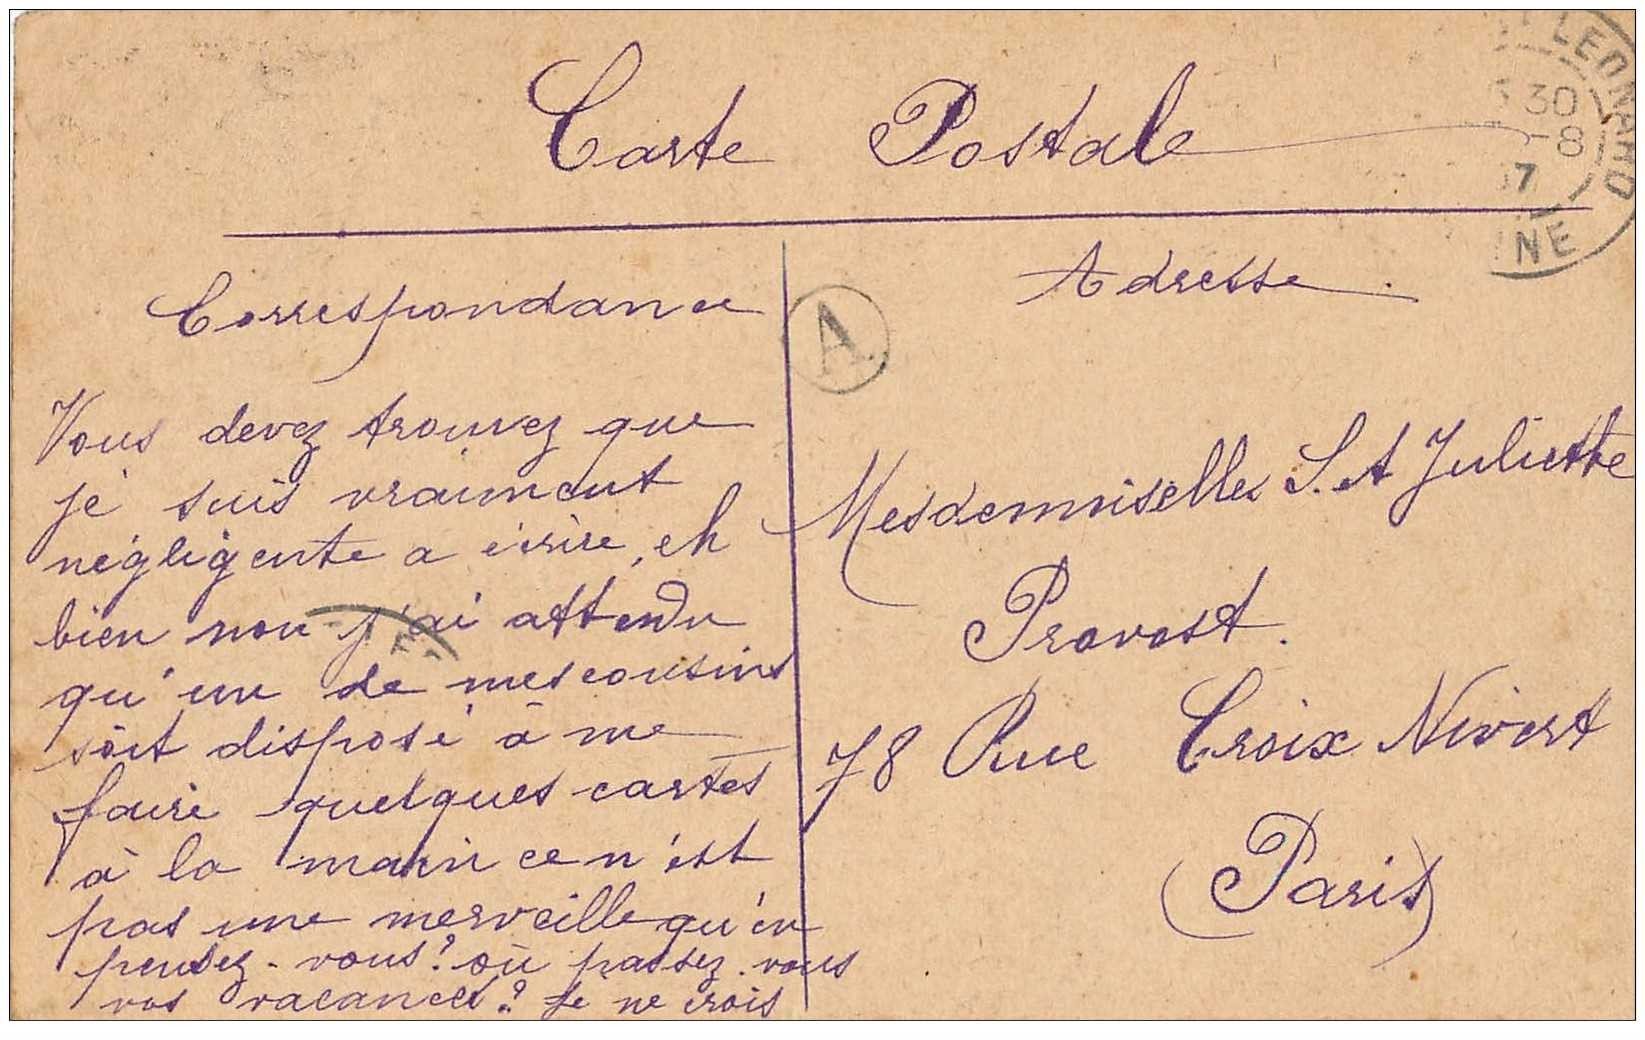 Carte Postale
LEONARD
30
-8
07
NE
Correspondance
Adresse
A
Vous devez trouvez que
je suis vraiment
négligente a écrire, eh
bien non j'ai attendu
qu'un de mes cousins
soit disposé à me
faire quelques cartes
à la main ce n'est
pas une merveille qu'en
pensez-vous? où passez-vous
vos vacances? Je ne crois
Mesdemoiselles S. et Juliette
Provost.
78 Rue Croix Nivert
(Paris)